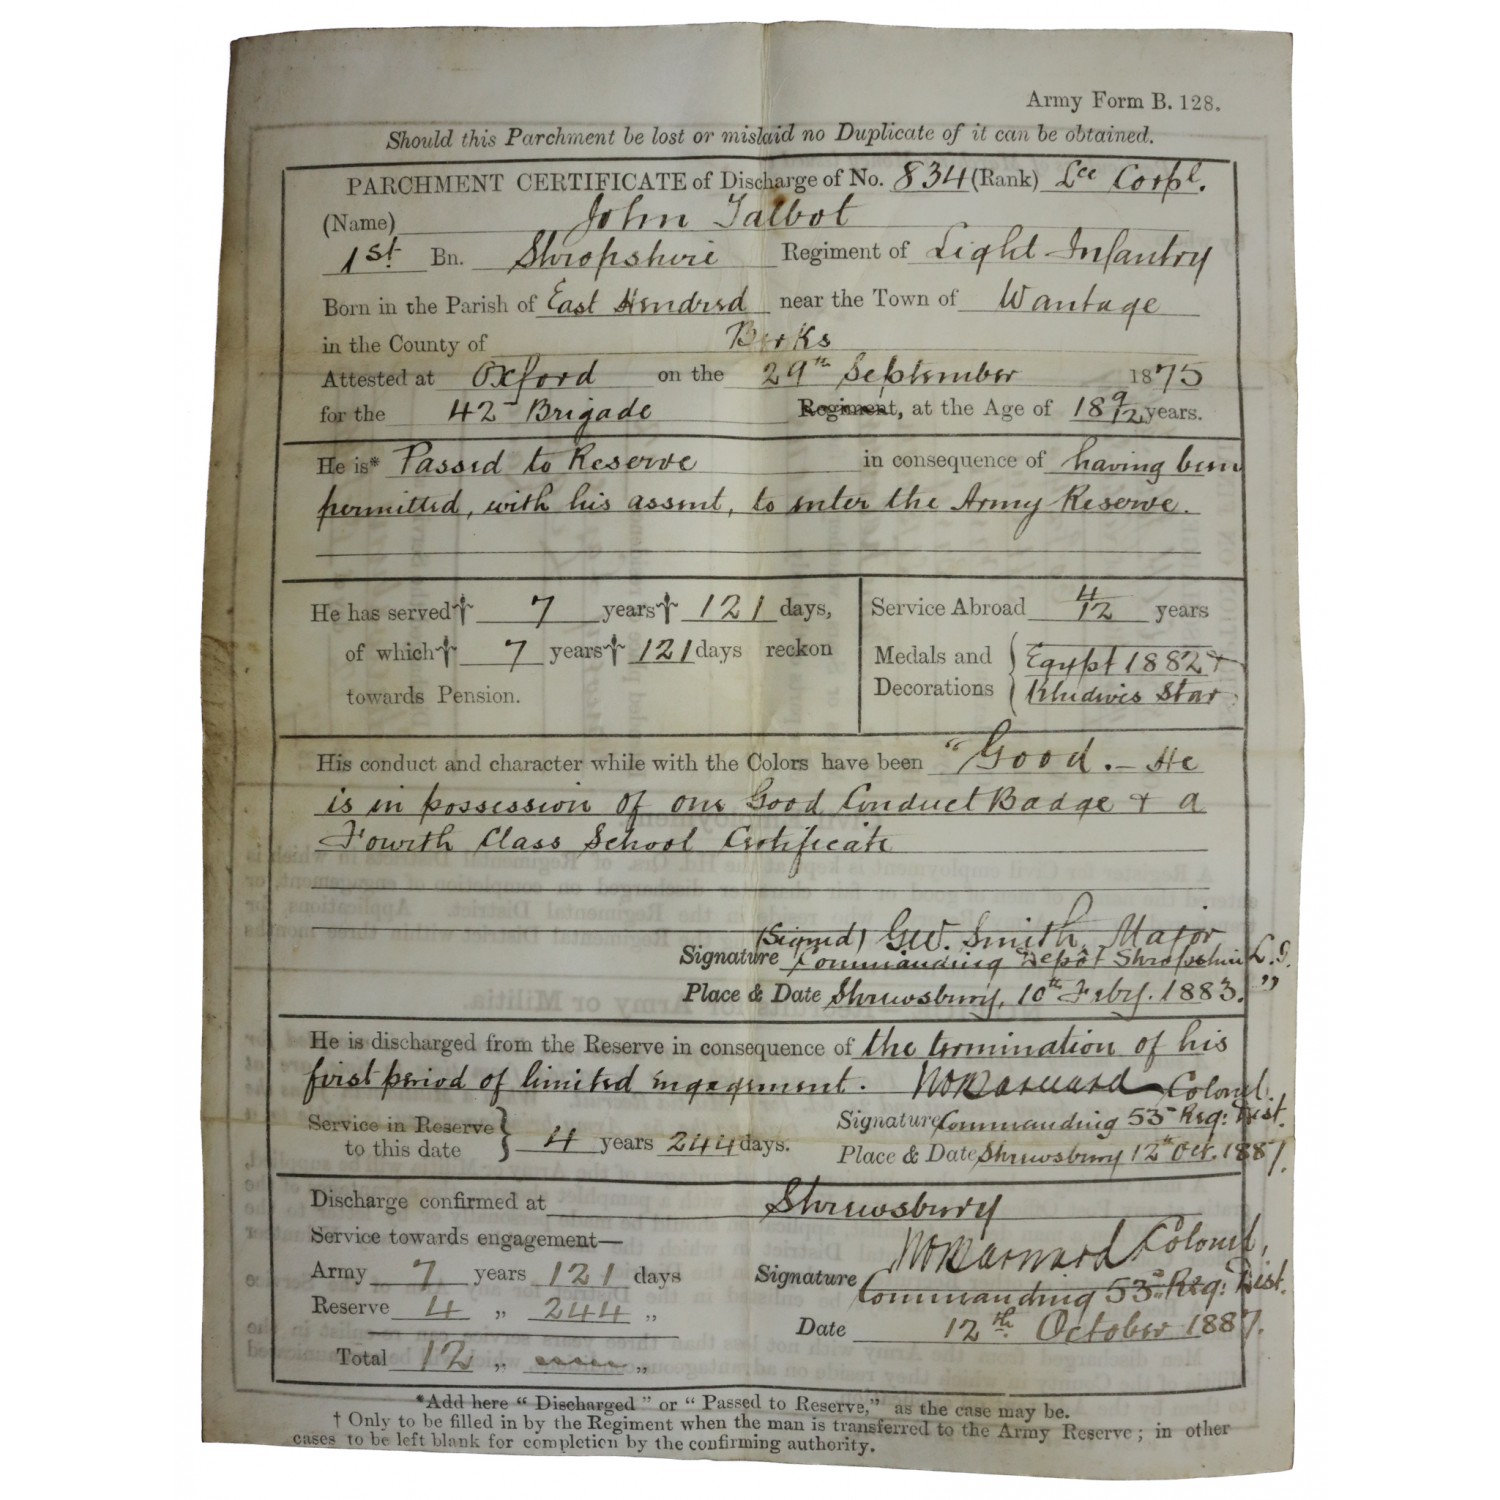 Army Form B. 128.
Should this Parchment be lost or mislaid no Duplicate of it can be obtained.
PARCHMENT CERTIFICATE of Discharge of No. 834 (Rank) Lce Corpl.
(Name) John Talbot
1st Bn. Shropshire Regiment of Light Infantry
Born in the Parish of East Hendred near the Town of Wantage
in the County of Berks
Attested at Oxford on the 29th September 1875
for the 42 Brigade Regiment, at the Age of 18 9/12 years.
He is* Passed to Reserve in consequence of having been
permitted, with his assent, to enter the Army Reserve.
He has served† 7 years† 121 days,
of which† 7 years† 121 days reckon
towards Pension.
Service Abroad 4/12 years
Medals and Decorations { Egypt 1882 +
Khedives Star
His conduct and character while with the Colors have been "Good. — He
is in possession of one Good Conduct Badge + a
Fourth Class School Certificate
(Signed) G.W. Smith, Major
Signature Commanding Depôt Shropshire L.I.
Place & Date Shrewsbury, 10th Feby. 1883. "
He is discharged from the Reserve in consequence of the termination of his
first period of limited engagement. Barnard Colonel.
Signature Commanding 53rd Reg: Dist.
Service in Reserve to this date } 4 years 244 days.
Place & Date Shrewsbury 12th Oct. 1887.
Discharge confirmed at Shrewsbury
Service towards engagement—
Army 7 years 121 days
Reserve 4 „ 244 „
Total 12 „ „
Barnard Colonel,
Signature Commanding 53rd Reg: Dist.
Date 12th October 1887.
*Add here "Discharged" or "Passed to Reserve," as the case may be.
† Only to be filled in by the Regiment when the man is transferred to the Army Reserve; in other
cases to be left blank for completion by the confirming authority.